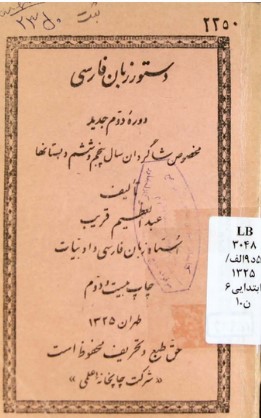 ثبت
۲۳۵۰
۲۲۵۰
دستور زبان فارسی
دورهٔ دوم جدید
مخصوص شاگردان سال پنجم و ششم دبستانها
تألیف
عبدالعظیم قریب
استاد زبان فارسی و ادبیات
چاپ بیست و دوم
طهران ۱۳۲۵
حق طبع و تحریف محفوظ است
«شرکت چاپخانهٔ علمی»
LB
۳۰۴۸
/الف۵د۹
۱۳۲۵
ابتدایی۶
ن۱۰